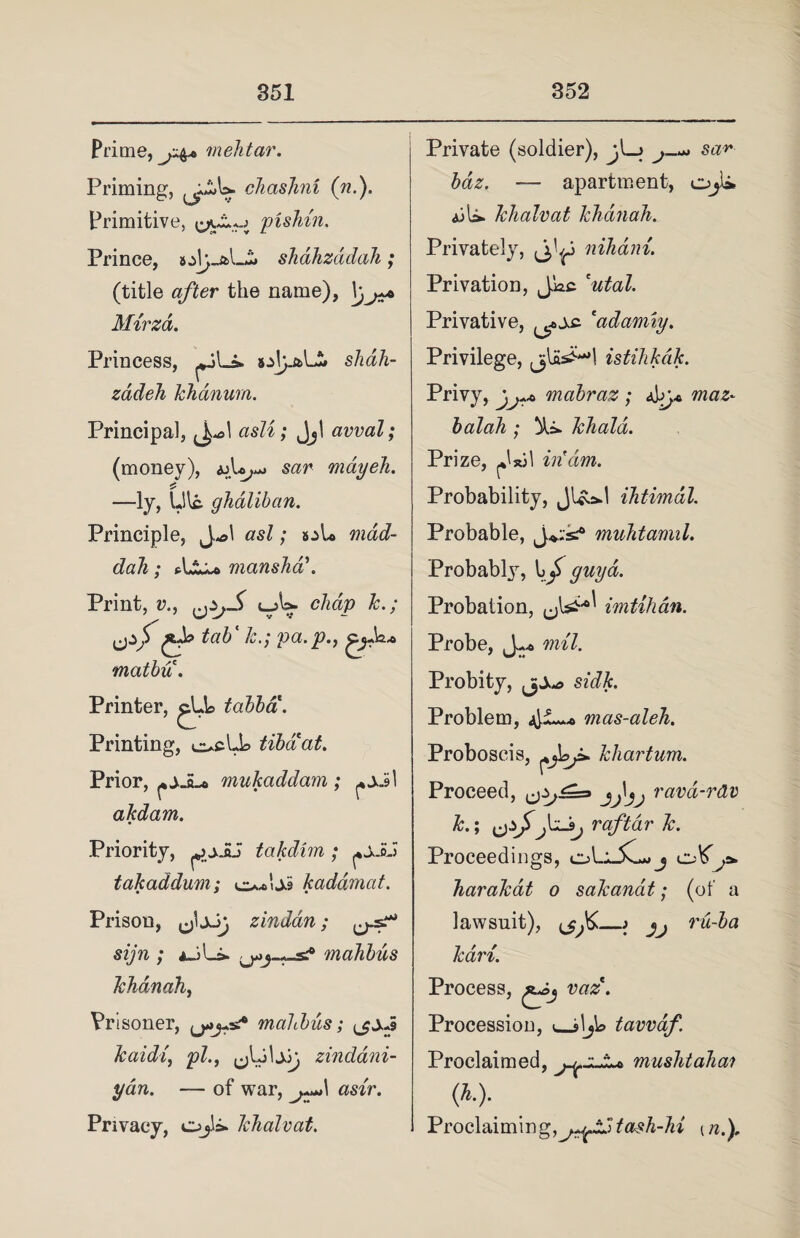 351
352
Prime, مهتر mehtar.
Priming, چاشنی chashni (n.).
Primitive, پیشین pishin.
Prince, شاهزاده sháhzádah ;
(title after the name), میرزا
Mirzá.
Princess, شاهزاده خانم sháh-
zádeh khánum.
Principal, اصلی aslí ; اول avval ;
(money), سرمایه sar máyeh.
—ly, غالباً gháliban.
Principle, اصل asl ; ماده mád-
dah ; منشاء manshá'.
Print, v., چاپ کردن cháp k. ;
طبع کردن tab' k.; pa. p., مطبوع
matbú'.
Printer, طباع tabbá'.
Printing, طباعت tibá'at.
Prior, مقدم mukaddam ; اقدم
akdam.
Priority, تقدیم takdím ; تقدم
takaddum ; قدامت kadámat.
Prison, زندان zindán ; سجن
sijn ; محبوس خانه mahbús
khánah,
Prisoner, محبوس mahbús ; قیدی
kaidí, pl., زندانیان zindáni-
yán. — of war, اسیر asír.
Privacy, خلوت khalvat.
Private (soldier), سر باز sar
báz. — apartment, خلوت
خانه khalvat khánah.
Privately, نهانی nihání.
Privation, عطل 'utal.
Privative, عدمی 'adamiy.
Privilege, استحقاق istihkák.
Privy, مبرز mabraz ; مزبله maz-
balah ; خلا khalá.
Prize, انعام in'ám.
Probability, احتمال ihtimál.
Probable, محتمل muhtamil.
Probably, گویا guyá.
Probation, امتحان imtihán.
Probe, میل míl.
Probity, صدق sidk.
Problem, مسئله mas-aleh.
Proboscis, خرطوم khartum.
Proceed, روارو کردن ravá-ráv
k. ; رفتار کردن raftár k.
Proceedings, حرکات و سکنات
harakát o sakanát ; (of a
lawsuit), رو بکاری rú-ba
kárí.
Process, وضع vaz'.
Procession, طواف tavváf.
Proclaimed, مشتهر mushtahar
(h.).
Proclaiming, تشهیر tash-hí (n.).